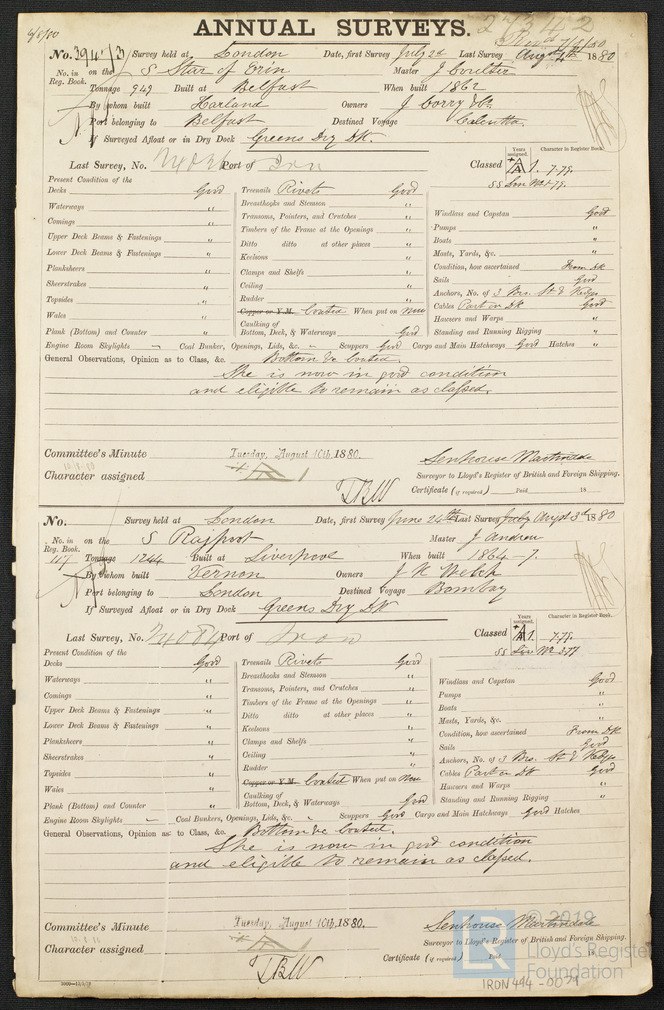 6/8/80
ANNUAL SURVEYS.
No. 39413 Survey held at London Date, first Survey July 26 Last Survey Augt 4th 1880
No. in Reg. Book. on the S Star of Erin Master J Coulter
Tonnage 949 Built at Belfast When built 1862
By whom built Harland Owners J Corry & Co
Port belonging to Belfast Destined Voyage Calcutta
If Surveyed Afloat or in Dry Dock Greens Dry Dk.
Years assigned. Character in Register Book.
Last Survey, No. Port of Iron Classed A 1. 7.79.
Present Condition of the
SS Lon No1-79.
Decks Good Treenails Rivets Good
Waterways " Breasthooks and Stemson " Windlass and Capstan Good
Comings " Transoms, Pointers, and Crutches " Pumps "
Upper Deck Beams & Fastenings " Timbers of the Frame at the Openings " Boats "
Lower Deck Beams & Fastenings " Ditto ditto at other places " Masts, Yards, &c. "
Planksheers " Keelsons " Condition, how ascertained From Dk
Sheerstrakes " Clamps and Shelfs " Sails Good
Topsides " Ceiling " Anchors, No. of 3 Brs. St & Kedges
Wales " Rudder " Cables Part on Dk Good
Plank (Bottom) and Counter " Copper or Y.M. Coated When put on now Hawsers and Warps "
Caulking of Bottom, Deck, & Waterways Good Standing and Running Rigging "
Engine Room Skylights — Coal Bunker, Openings, Lids, &c. — Scuppers Good Cargo and Main Hatchways Good Hatches "
General Observations, Opinion as to Class, &c. Bottom &c coated.
She is now in good condition
and eligible to remain as classed.
Committee's Minute Tuesday, August 10th, 1880. Senhouse Martindale
Character assigned A 1 Surveyor to Lloyd's Register of British and Foreign Shipping.
TBW Certificate (if required) Paid 18
No. Survey held at London Date, first Survey June 24th Last Survey Augt 3d 1880
No. in Reg. Book. on the S Rajpoot Master J Andrew
47 Tonnage 1244 Built at Liverpool When built 1864-7
By whom built Vernon Owners J H Welch
Port belonging to London Destined Voyage Bombay
If Surveyed Afloat or in Dry Dock Greens Dry Dk
Years assigned. Character in Register Book.
Last Survey, No. Port of Iron Classed A 1. 7.79.
Present Condition of the
Decks Good Treenails Rivets Good
Waterways " Breasthooks and Stemson " Windlass and Capstan Good
Comings " Transoms, Pointers, and Crutches " Pumps "
Upper Deck Beams & Fastenings " Timbers of the Frame at the Openings " Boats "
Lower Deck Beams & Fastenings " Ditto ditto at other places " Masts, Yards, &c. "
Planksheers " Keelsons " Condition, how ascertained From Dk
Sheerstrakes " Clamps and Shelfs " Sails Good
Topsides " Ceiling " Anchors, No. of 3 Brs. St & Kedges
Wales " Rudder " Cables Part on Dk Good
Plank (Bottom) and Counter " Copper or Y.M. Coated When put on now Hawsers and Warps "
Caulking of Bottom, Deck, & Waterways Good Standing and Running Rigging "
Engine Room Skylights — Coal Bunkers, Openings, Lids, &c. — Scuppers Good Cargo and Main Hatchways Good Hatches
General Observations, Opinion as to Class, &c. Bottom &c coated.
She is now in good condition
and eligible to remain as classed.
Committee's Minute Tuesday, August 10th, 1880. Senhouse Martindale
Character assigned A 1 Surveyor to Lloyd's Register of British and Foreign Shipping.
TBW Certificate (if required) Paid 18
© 2019
LR Lloyd's Register
Foundation
IRON 494-0039